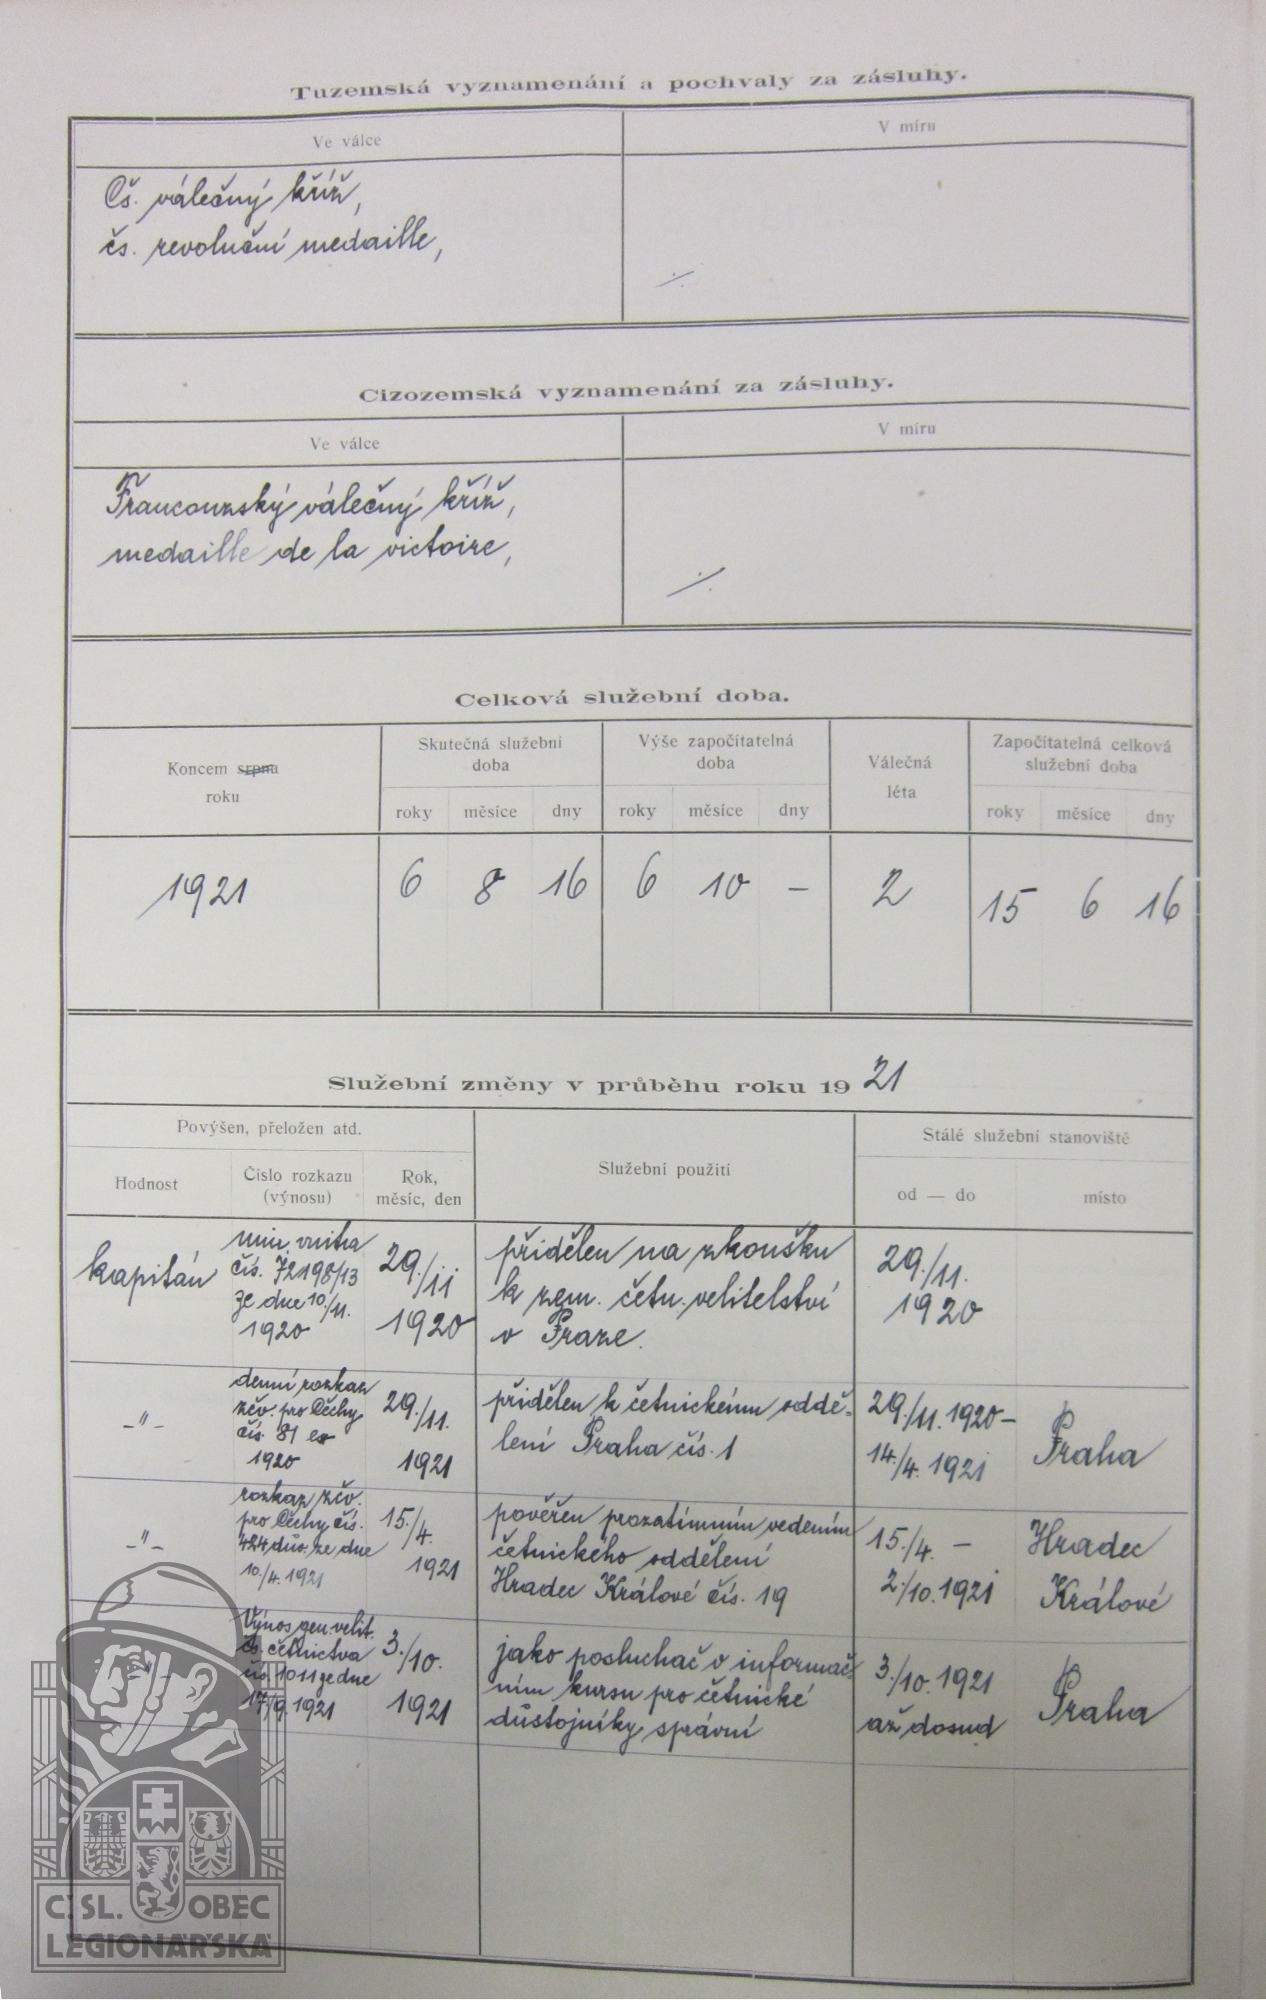 Tuzemská vyznamenání a pochvaly za zásluhy.
Ve válce
V míru
Čs. válečný kříž,
čs. revoluční medaille,
⁒
Cizozemská vyznamenání za zásluhy.
Ve válce
V míru
Francouzský válečný kříž,
medaille de la victoire,
⁒
Celková služební doba.
Koncem srpna roku
Skutečná služební doba
Výše započítatelná doba
Válečná léta
Započítatelná celková služební doba
roky měsíce dny roky měsíce dny roky měsíce dny
1921 6 8 16 6 10 – 2 15 6 16
Služební změny v průběhu roku 19 21
Povýšen, přeložen atd.
Služební použití
Stálé služební stanoviště
Hodnost
Číslo rozkazu (výnosu)
Rok, měsíc, den
od — do
místo
kapitán
min. vnitra
čís. 72198/13
ze dne 10./11.
1920
29./11
1920
přidělen na zkoušku
k zem. četn. velitelství
v Praze.
29./11.
1920
–"–
denní rozkaz
zčv. pro Čechy
čís. 81 ex
1920
29./11.
1921
přidělen k četnickému oddě-
lení Praha čís. 1
29./11. 1920 –
14./4. 1921
Praha
–"–
rozkaz zčv.
pro Čechy čís.
424 důs. ze dne
10./4. 1921
15./4.
1921
pověřen prozatimním vedením
četnického oddělení
Hradec Králové čís. 19
15./4. –
2./10. 1921
Hradec
Králové
–"–
Výnos gen. velit.
čs. četnictva
čís. 1011 ze dne
17/9. 1921
3./10.
1921
jako posluchač v informač-
ním kursu pro četnické
důstojníky správní
3./10. 1921
až dosud
Praha
Č. SL. OBEC
LEGIONÁŘSKÁ